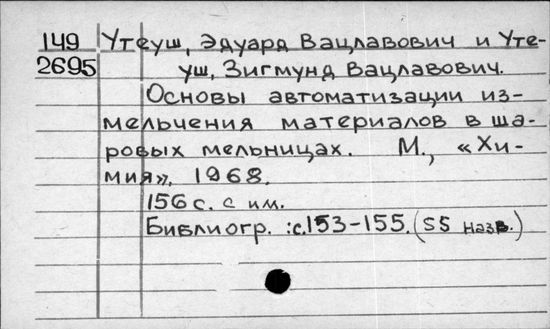 149 Утеуш, Эдуард Вацлавович и Уте-
2695 уш, Зигмунд Вацлавович.
Основы автоматизации из-
мельчения материалов в ша-
ровых мельницах. М., «Хи-
мия», 1968.
156 с. с им.
Библиогр.: с.153-155. (55 назв.)